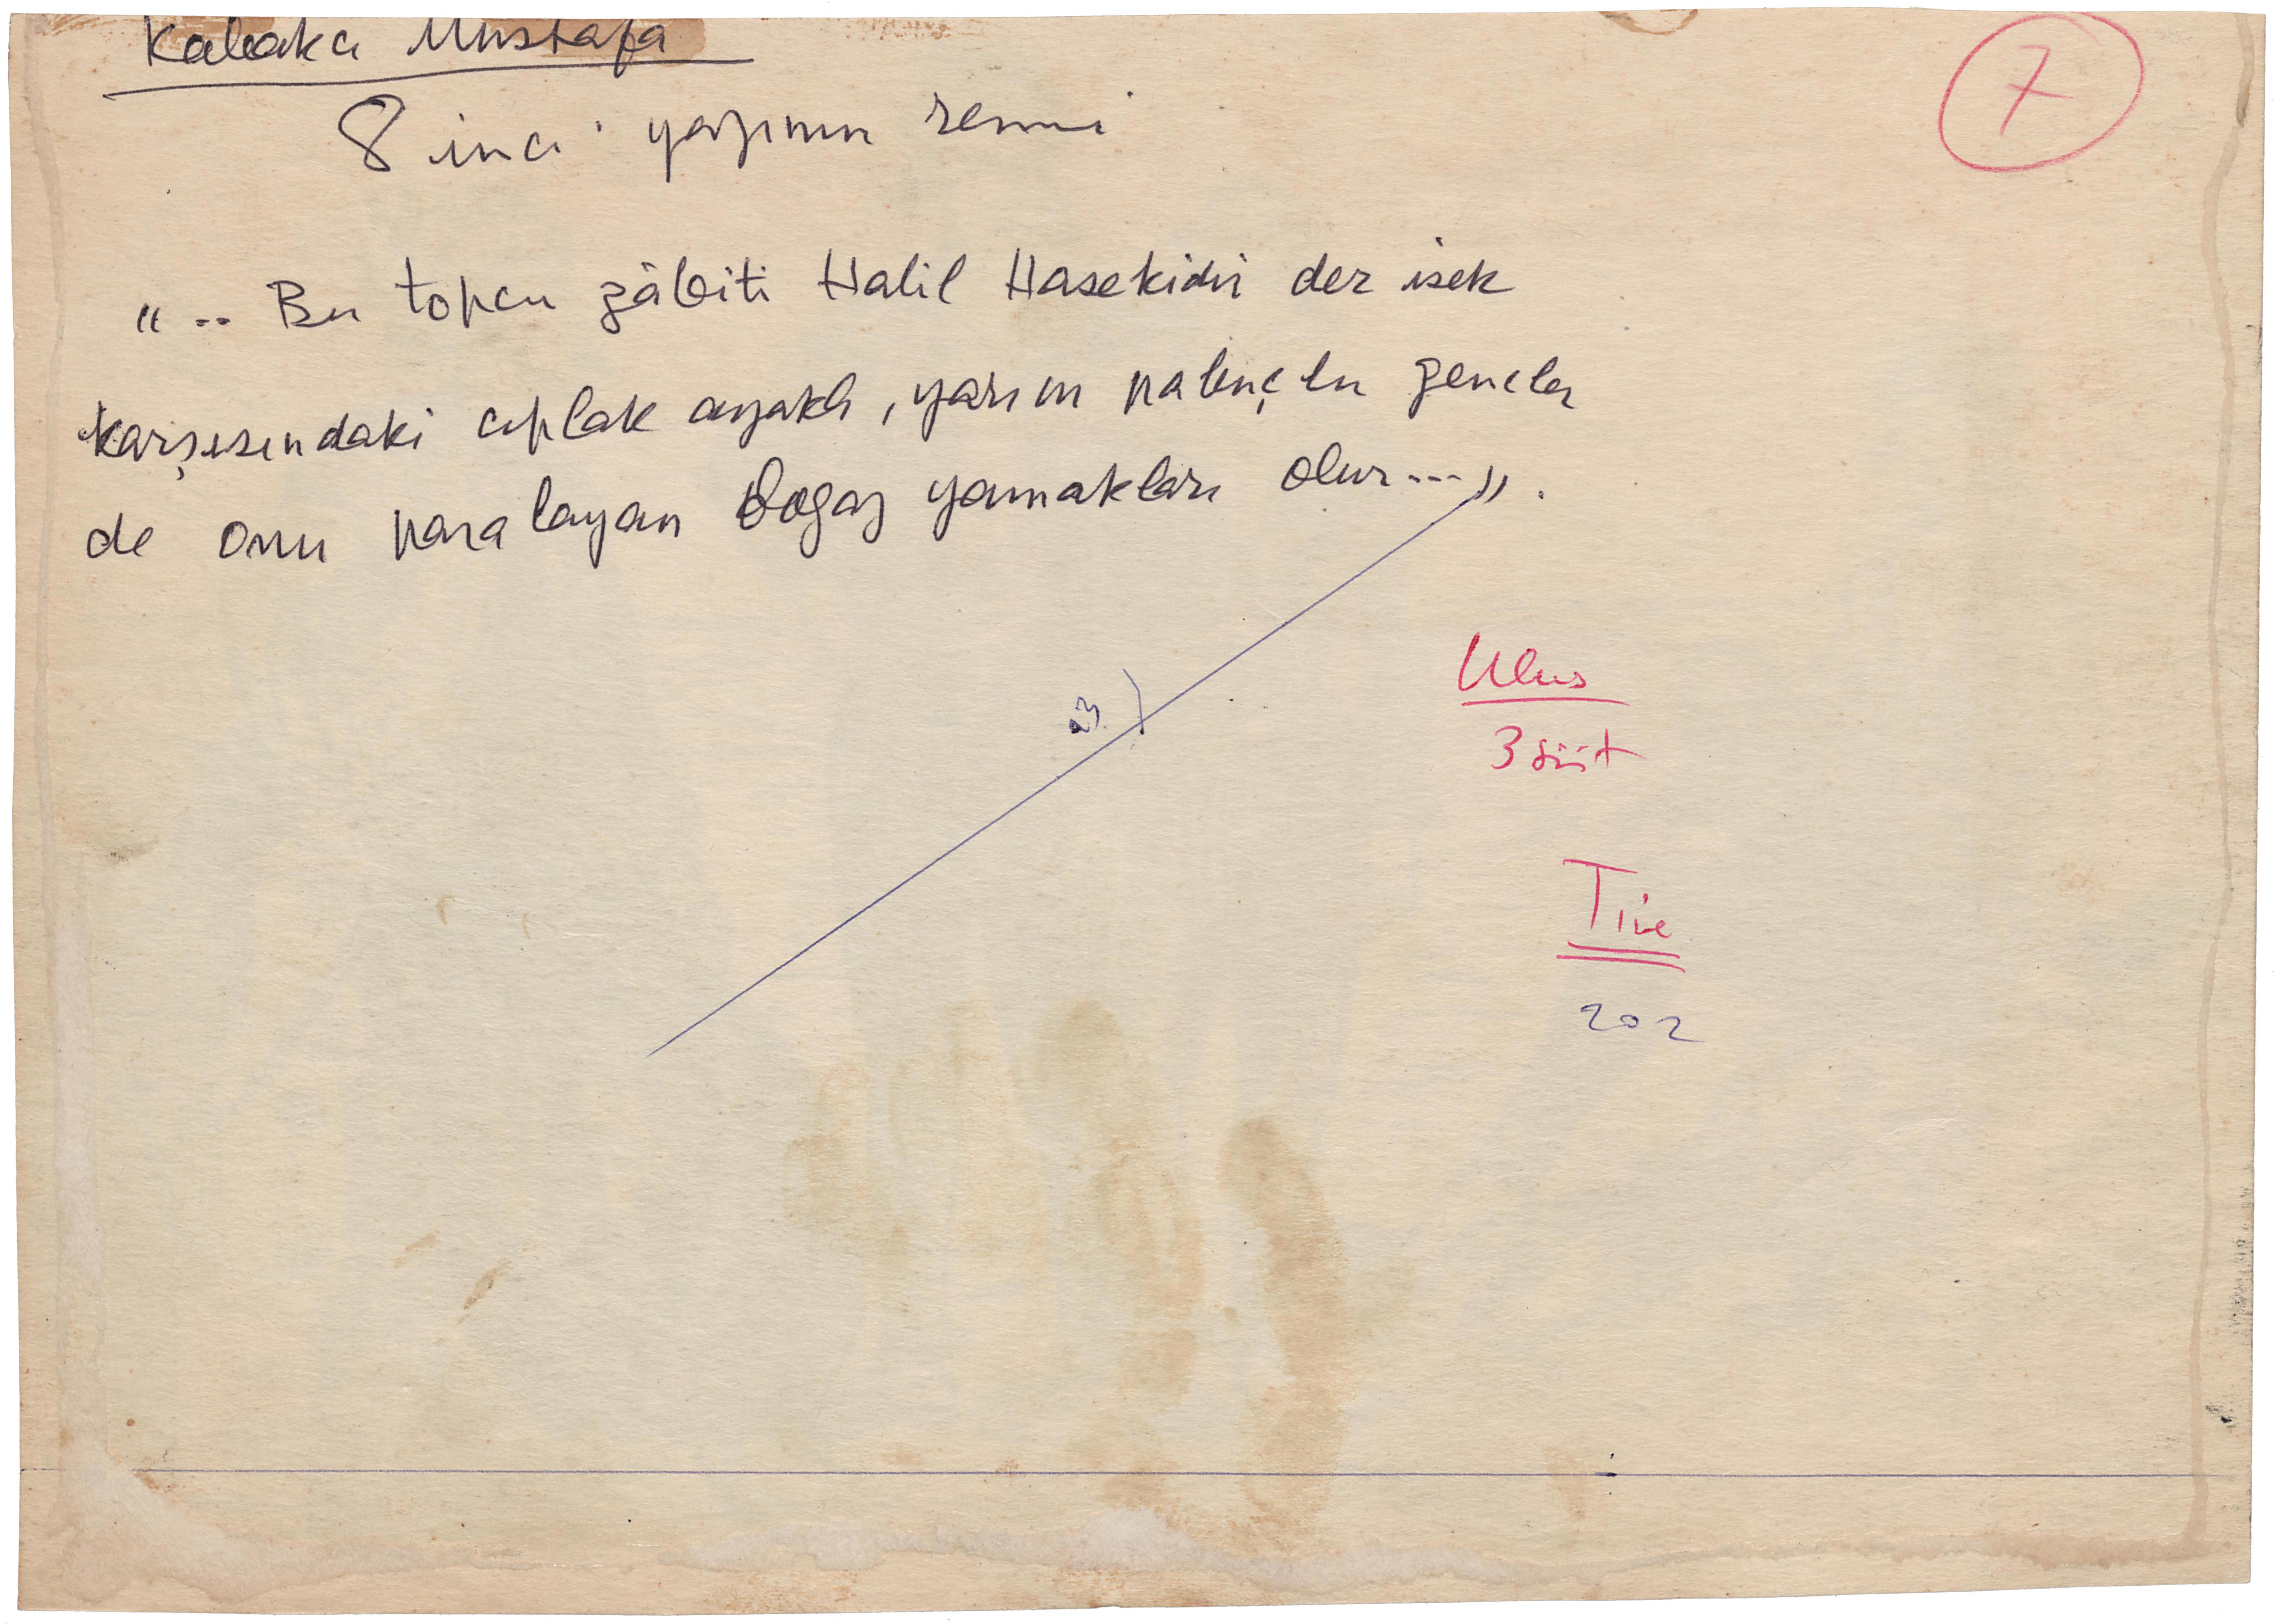 Kabakcı Mustafa
7
8 inci yazının resmi
".. Bu topcu zâbiti Halil Hasekidir der isek
karşısındaki cıplak ayaklı, yarım pabuçlu gencler
de onu paralayan Boğaz yamakları olur...".
23
Ulus
3 süt
Tire
202